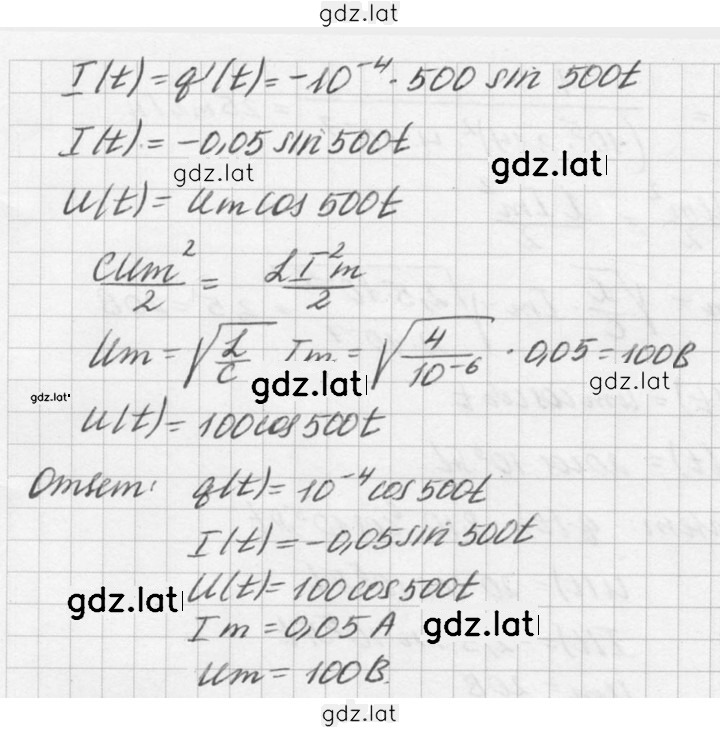 gdz.lat
I(t) = q'(t) = -10⁻⁴ · 500 sin 500t
I(t) = -0,05 sin 500t
gdz.lat
gdz.lat
U(t) = Um cos 500t
CUm²/2 = LI²m/2
Um = √(L/C) Im = √(4/10⁻⁶) · 0,05 = 100В
gdz.lat
gdz.lat
gdz.lat
U(t) = 100cos 500t
Ответ: q(t) = 10⁻⁴ cos 500t
I(t) = -0,05 sin 500t
U(t) = 100cos 500t
gdz.lat
Im = 0,05 А
gdz.lat
Um = 100В.
gdz.lat